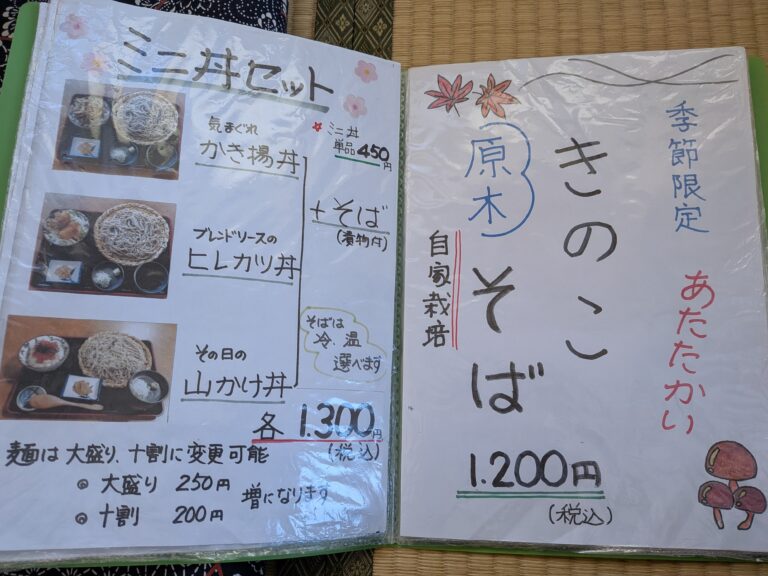 ミニ丼セット
気まぐれ
かき揚丼
ミニ丼
単品450円
ブレンドソースの
ヒレカツ丼
+そば
(漬物付)
その日の
山かけ丼
そばは
冷、温
選べます
各 1.300円
(税込)
麺は大盛り、十割に変更可能
◎ 大盛り 250円
◎ 十割 200円
増になります
季節限定
あたたかい
きのこ
そば
原木
自家栽培
1.200円
(税込)